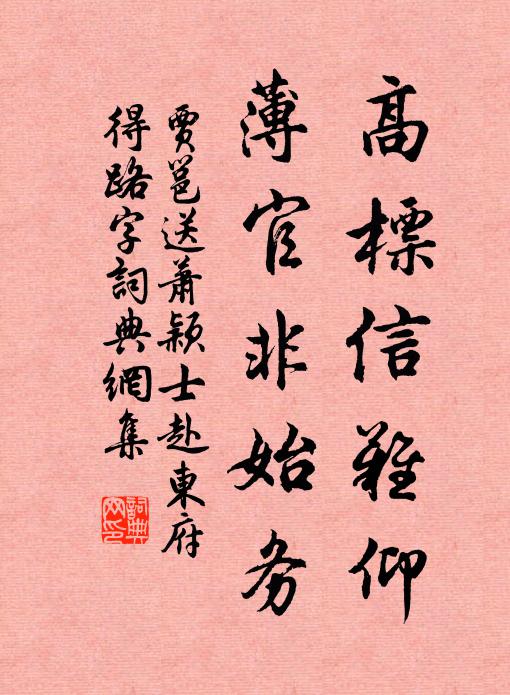 高標信難仰
薄官非始务
賈邕送蕭颖士赴東府
得路字詞典網集
詞典
网印